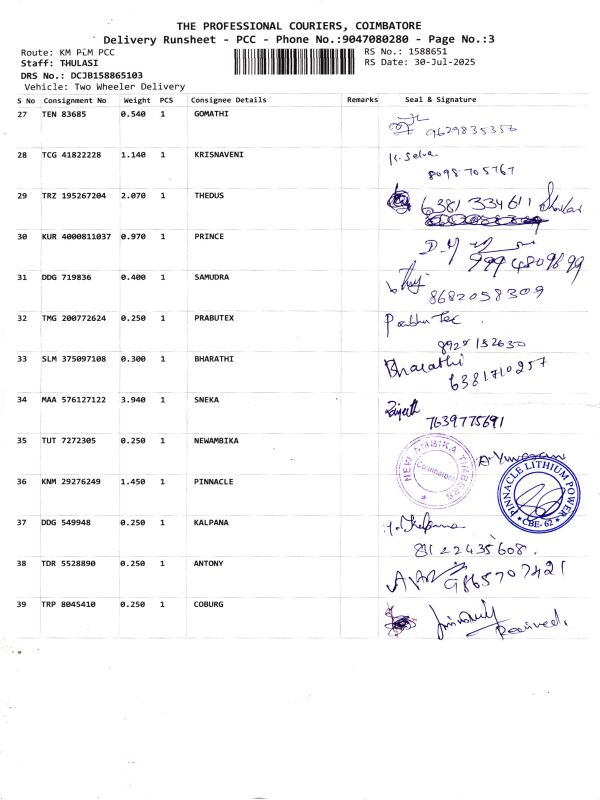 THE PROFESSIONAL COURIERS, COIMBATORE
Delivery Runsheet - PCC - Phone No.:9047080280 - Page No.:3
Route: KM PLM PCC
RS No.: 1588651
Staff: THULASI
RS Date: 30-Jul-2025
DRS No.: DCJB158865103
Vehicle: Two Wheeler Delivery
S No Consignment No Weight PCS Consignee Details Remarks Seal & Signature
27 TEN 83685 0.540 1 GOMATHI
9629835350
28 TCG 41822228 1.140 1 KRISNAVENI K. Selva
8098 705767
29 TRZ 195267204 2.070 1 THEDUS 6381 334611
30 KUR 4000811037 0.970 1 PRINCE
999 4809899
31 DDG 719836 0.400 1 SAMUDRA
8682058309
32 TMG 200772624 0.250 1 PRABUTEX Prabhu Tex
8925 152630
33 SLM 375097108 0.300 1 BHARATHI Bharathi
6381710257
34 MAA 576127122 3.940 1 SNEKA
7639775691
35 TUT 7272305 0.250 1 NEWAMBIKA NEW AMBIKA TIMBERS
Coimbatore
36 KNM 29276249 1.450 1 PINNACLE PINNACLE LITHIUM POWER
CBE-62
37 DDG 549948 0.250 1 KALPANA Kalpana
81 22435608.
38 TDR 5528890 0.250 1 ANTONY
9865707421
39 TRP 8045410 0.250 1 COBURG
Received.